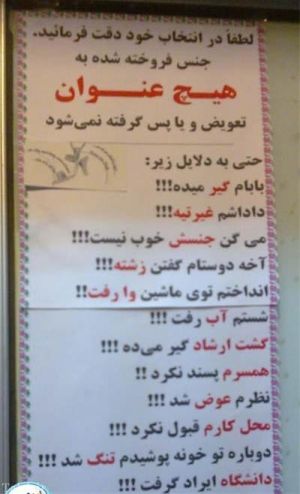 لطفاً در انتخاب خود دقت فرمائید.
جنس فروخته شده به
هیچ عنوان
تعویض و یا پس گرفته نمی‌شود
حتی به دلایل زیر:
بابام گیر میده!!!
داداشم غیرتیه!!!
می گن جنسش خوب نیست!!!
آخه دوستام گفتن زشته!!!
انداختم توی ماشین وا رفت!!
شستم آب رفت !!!
گشت ارشاد گیر می‌ده !!!
همسرم پسند نکرد !!
نظرم عوض شد !!!
محل کارم قبول نکرد !!!
دوباره تو خونه پوشیدم تنگ شد !!!
دانشگاه ایراد گرفت !!!